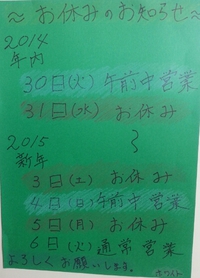 ≈ お休みのお知らせ ≈
2014
年内
30日(火)午前中営業
31日(水) お休み
2015 〜
新年
3日(土) お休み
4日(日)午前中営業
5日(月) お休み
6日(火)通常営業
よろしくお願いします。 ホワイト